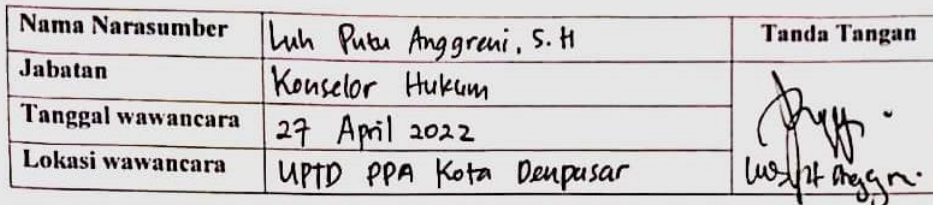 Nama Narasumber Luh Putu Anggreni, S.H Tanda Tangan
Jabatan Konselor Hukum
Tanggal wawancara 27 April 2022
Lokasi wawancara UPTD PPA Kota Denpasar